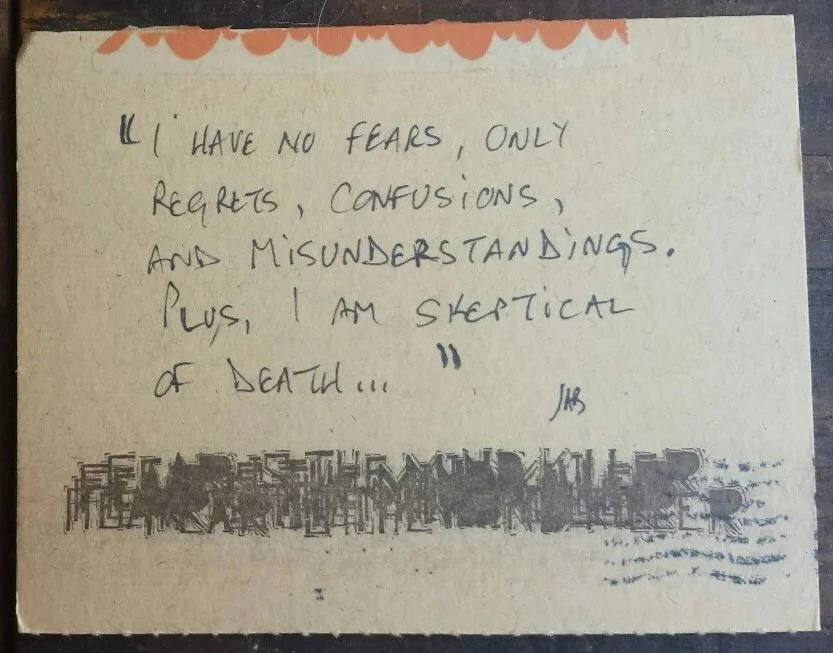 "I HAVE NO FEARS, ONLY
REGRETS, CONFUSIONS,
AND MISUNDERSTANDINGS.
PLUS, I AM SKEPTICAL
OF DEATH..."
JAB
FEAR IS THE MIND KILLER